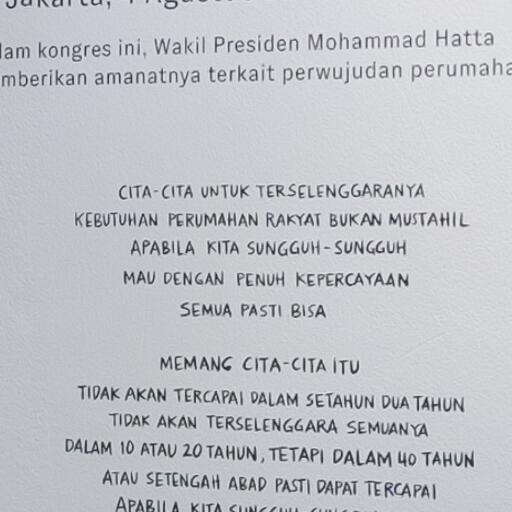 lam kongres ini, Wakil Presiden Mohammad Hatta
mberikan amanatnya terkait perwujudan perumaha
CITA-CITA UNTUK TERSELENGGARANYA
KEBUTUHAN PERUMAHAN RAKYAT BUKAN MUSTAHIL
APABILA KITA SUNGGUH-SUNGGUH
MAU DENGAN PENUH KEPERCAYAAN
SEMUA PASTI BISA
MEMANG CITA-CITA ITU
TIDAK AKAN TERCAPAI DALAM SETAHUN DUA TAHUN
TIDAK AKAN TERSELENGGARA SEMUANYA
DALAM 10 ATAU 20 TAHUN, TETAPI DALAM 40 TAHUN
ATAU SETENGAH ABAD PASTI DAPAT TERCAPAI
APABILA KITA